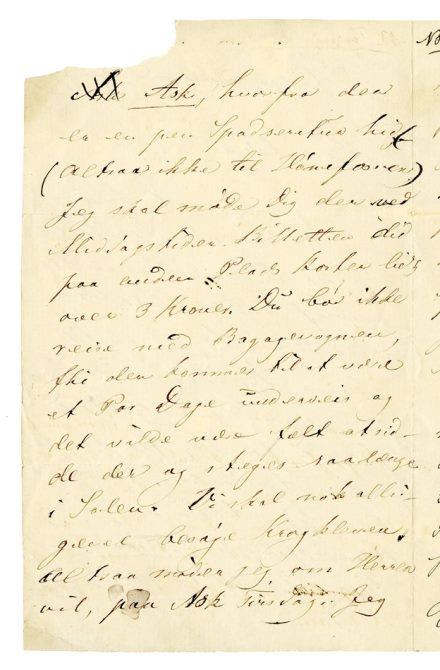 Ask, hvorfra der
er en pen Spadsertur hid
(altsaa ikke til Hønefossen)
Jeg skal møde Dig der ved
Middagstider. Billetten did
paa anden Plads koster lidt
over 3 Kroner. Du bør ikke
reise med Bagagevognen,
thi den kommer til at være
et Par Dage underveis og
det vilde være fælt at sid-
de der og steges saalænge
i Solen. Vi skal nok alli-
gevel besøge Krogkleven,
altsaa møder jeg om Herren
vil, paa Ask Tirsdag. Jeg
No